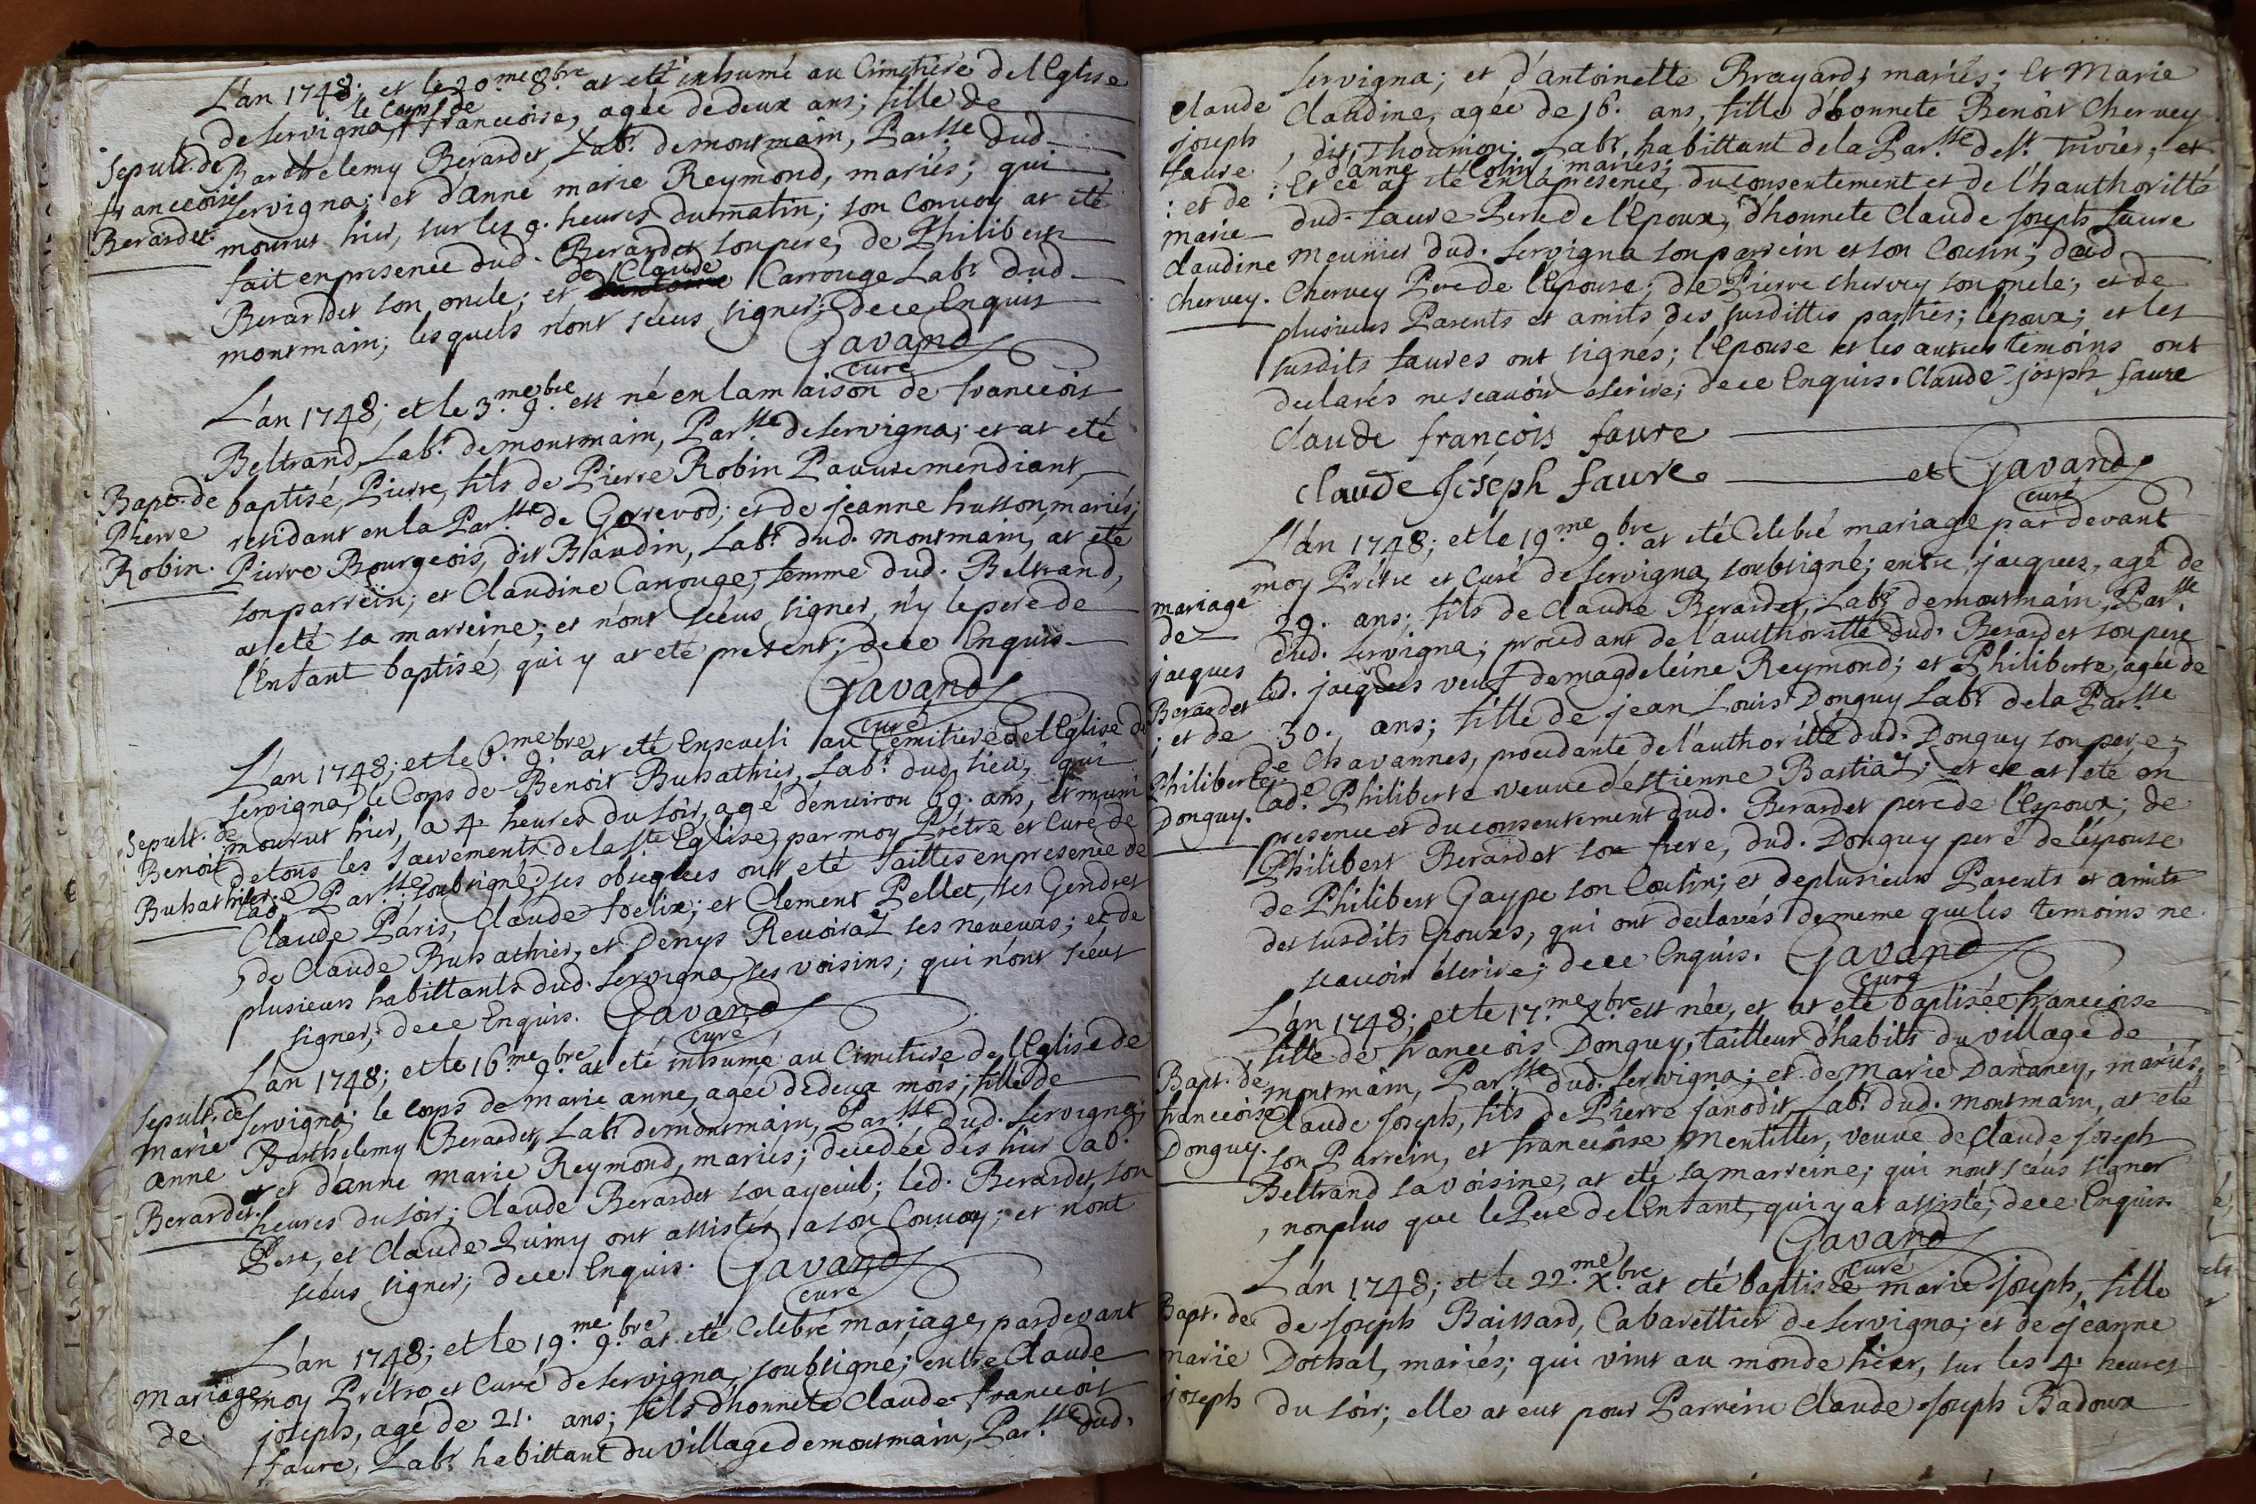 L'an 1748; et le 20.me 8.bre at eté inhumé au Cimetiere de l'Eglise
de Servigna, le corps de francoise, agée de deux ans; fille de
Sepult. de francoise Berardet.
Barthelemy Berardet, Lab.r de montmain, Par.sse dud.
Servigna; et d'anne marie Reymond, mariés; qui
mourut hier, sur les 9. heures du matin; son Convoy at eté
fait en presence dud. Berardet son pere, de Philibert
Berardet son oncle; et de Claude Carrouge Lab.r dud.
montmain; lesquels n'ont sceus signer; de ce Enquis
Gavand
curé
L'an 1748; et le 3.me 9.bre est né en la maison de francois
Beltrand, Lab.r de montmain, Par.sse de Servigna; et at eté
Bapt. de Pierre Robin.
baptisé, Pierre, fils de Pierre Robin Pauvre mendiant,
residant en la Par.sse de Gorrevod; et de jeanne husson, mariés;
Pierre Bourgeois, dit Baudin, Lab.r dud. montmain, at eté
son parrein; et Claudine Carrouge, femme dud. Beltrand,
at eté sa marreine; et n'ont sceus signer, n'y le pere de
l'Enfant baptisé, qui y at eté present; de ce Enquis
Gavand
curé
L'an 1748; et le 6.me 9.bre at eté Enseveli au Cemitiere de l'Eglise de
Servigna, le Corps de Benoit Buhathier, Lab.r dud. lieu, qui
Sepult. de Benoit Buhathier.
mourut hier, a 4 heures du soir, agé d'environ 69. ans, et muni
de tous les sacrements de la ste Eglise, par moy Prêtre et Curé de
lad. Par.sse soubsigné; ses obseques ont eté faittes en presence de
Claude Pâris, Claude felix; et Clement Pellet, ses Gendres
, de Claude Buhathier, et Denys Revoiraz ses neveux; et de
plusieurs habittants dud. Servigna, ses voisins; qui n'ont sceus
signer; de ce Enquis. Gavand
curé
L'an 1748; et le 16.me 9.bre at eté inhumé au Cimetiere de l'Eglise de
Sepult. de marie anne Berardet.
Servigna; le corps de marie anne, agée de deux mois; fille de
Barthelemy Berardet, Lab.r de montmain, Par.sse dud. Servigna;
et d'anne marie Reymond, mariés; decedée dès hier a 6.
heures du soir; Claude Berardet son ayeiul; led. Berardet, son
Pere, et Claude Quimy ont assistés a son Convoy; et n'ont
sceus signer; de ce Enquis. Gavand
curé
L'an 1748; et le 19.me 9.bre at eté Celebré mariage, pardevant
Mariage de
moy Prêtre et Curé de Servigna, soubsigné; entre Claude
joseph, agé de 21. ans; fils d'honnete Claude francois
faure, Lab.r habittant du village de montmain, Par.sse dud.
Servigna; et d'antoinette Brayard, mariés; Et Marie
Claude joseph faure : et de marie Claudine Chervey.
Claudine, agée de 16. ans, fille d'honnete Benoît Chervey
, dit Thoumion; Lab.r habittant de la Par.sse de s.t Trivier, et
d'anne Colin, mariés;
Et ce at eté en la presence, du consentement et de l'hauthoritté
dud. faure Pere de l'Epoux, d'honnete Claude Joseph faure
meunier dud. Servigna son parrein et son Cousin; dud.
Chervey Pere de l'Epouse; de Pierre Chervey son oncle; et de
plusieurs Parents et amits des susdittes parties; l'époux; et les
susdits faures ont signés; l'Epouse et les autres temoins ont
declarés ne scavoir escrire; de ce Enquis. Claude-joseph faure
Claude françois faure
Claude Joseph faure et Gavand
curé
L'an 1748; et le 19.me 9.bre at eté Celebré mariage pardevant
moy Prêtre et Curé de Servigna, soubsigné; entre jacques, agé de
mariage de jacques Berardet ; et de Philiberte Donguy.
29. ans; fils de Claude Berardet, Lab.r de montmain, Par.sse
dud. Servigna; procedant de l'authoritté dud. Berardet son pere
led. jacques veuf de magdeleine Reymond; et Philiberte, agée de
30. ans; fille de jean Louis Donguy Lab.r de la Par.sse
de Chavannes, procedante de l'authoritté dud. Donguy son pere;
lad.e Philiberte veuve d'estienne Bastiaz; et ce at eté en
presence et du consentement dud. Berardet pere de l'Espoux; de
Philibert Berardet son frere, dud. Donguy pere de l'espouse
de Philibert Gaype son Cousin; et de plusieurs Parents et amits
des susdits Epoux, qui ont declarés de meme que les temoins ne
scavoir escrire; de ce Enquis. Gavand
curé
L'an 1748; et le 17.me X.bre est née, et at eté baptisée francoise
fille de francois Donguy, tailleur d'habits du village de
Bapt. de francoise Donguy.
montmain, Par.sse dud. Servigna; et de Marie Dananey, mariés;
Claude Joseph, fils de Pierre Janodit, Lab.r dud. montmain, at eté
son Parrein, et francoise Mentillier, veuve de Claude Joseph
Beltrand sa voisine, at eté sa marreine; qui n'ont sceus signer
, non plus que le Pere de l'Enfant, qui y at assisté; de ce Enquis
Gavand
curé
L'an 1748; et le 22.me X.bre at eté baptisée marie Joseph, fille
Bapt. de marie joseph
de Joseph Baissard, Cabarettier de Servigna; et de jeanne
Dothal, mariés; qui vint au monde hier, sur les 4. heures
du soir; elle at eut pour Parrein Claude Joseph Badoux